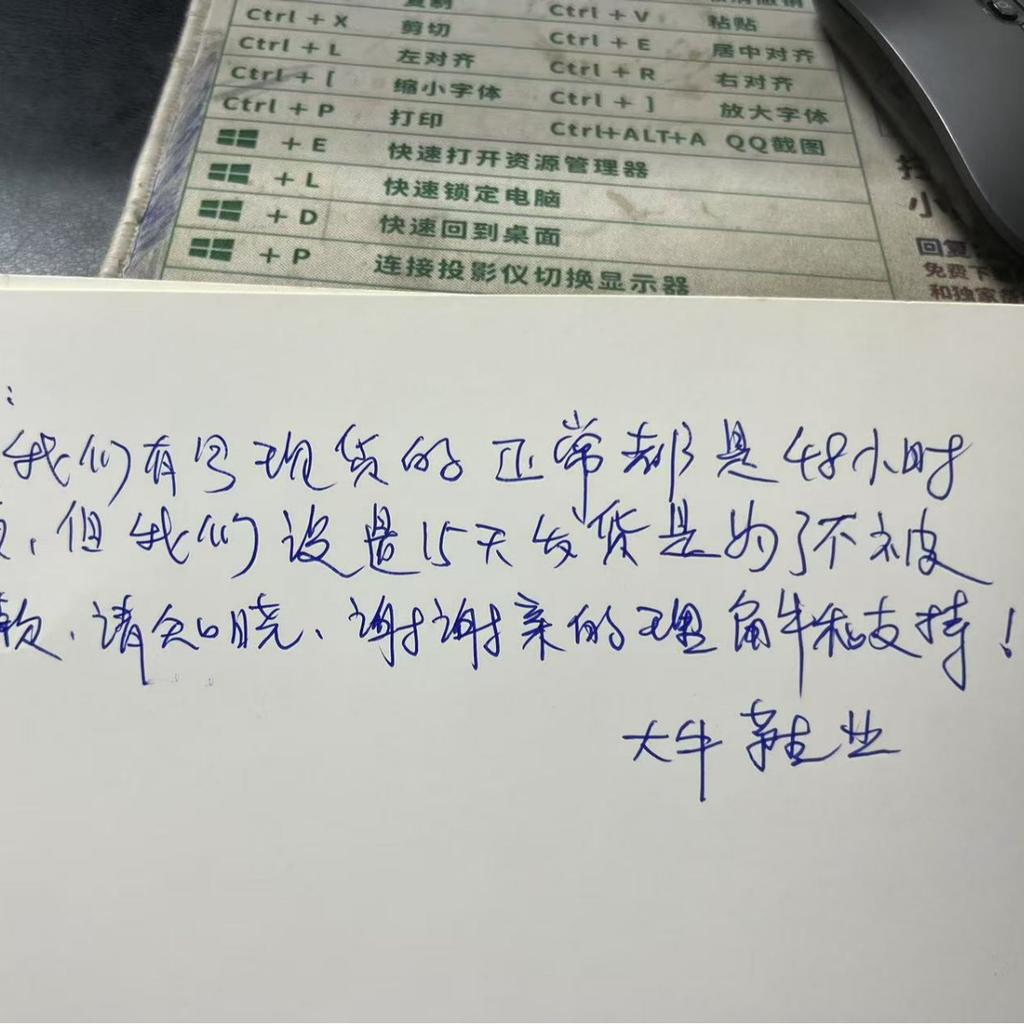 复制
Ctrl + X 剪切 Ctrl + V 粘贴
Ctrl + L 左对齐 Ctrl + E 居中对齐
Ctrl + [ 缩小字体 Ctrl + R 右对齐
Ctrl + P 打印 Ctrl + ] 放大字体
+ E 快速打开资源管理器 Ctrl+ALT+A QQ截图
+ L 快速锁定电脑
+ D 快速回到桌面
+ P 连接投影仪切换显示器
小
回复
免费下
和独家
:
我们有号现货的正常都是48小时
,但我们设置15天发货是为了不被
款,请知晓、谢谢亲的理解和支持!
大牛鞋业